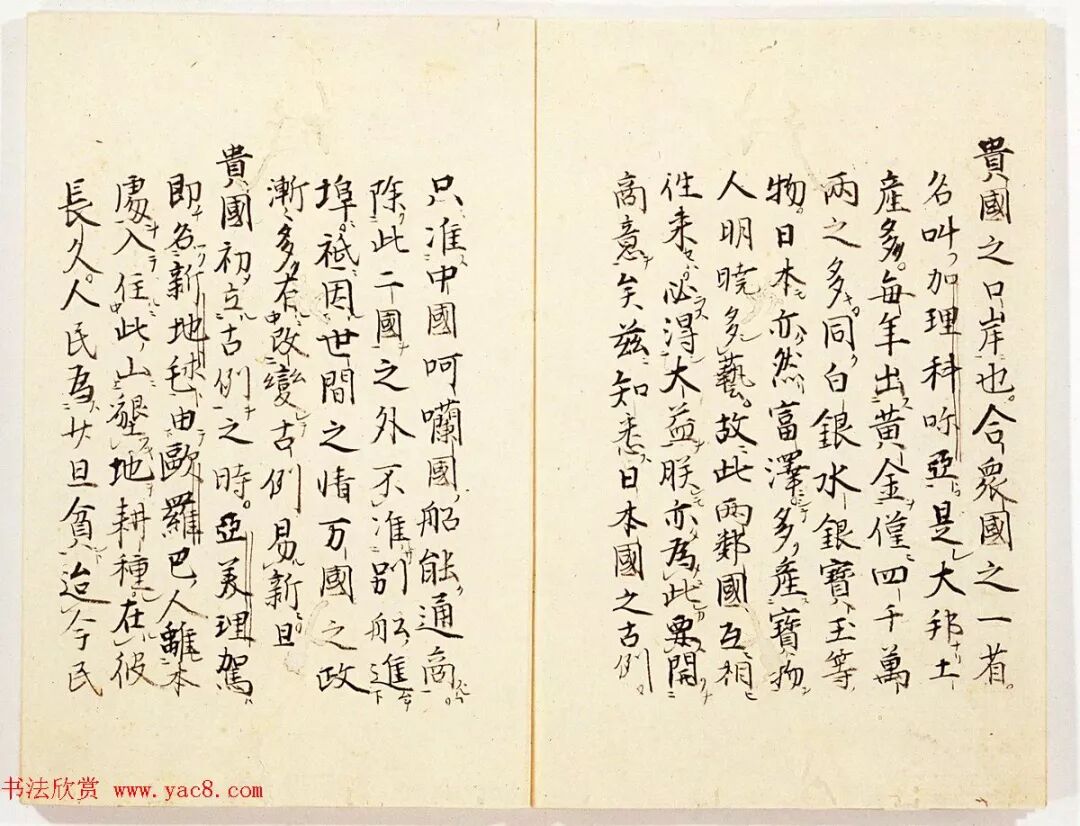 貴國之口岸也。合眾國之一省。
名叫加理科啲亞是大邦土
產多。每年出黃金僅四千萬
兩之多。同白銀水銀寶玉等
物。日本亦然富澤。多產寶物
人明曉多藝。故此兩鄰國互相
往來。必得大益朕亦為此要開
商意矣茲知悉日本國之古例
只准中國呵囒國船能通商。
除此二國之外不准別船進
埠。祗因世間之情万國之政
漸々多有改變古例易新且
貴國初立古例之時。亞美理駕
即名新地毬由歐羅巴人離本
處入住此山墾地耕種。在彼
長久。人民為廿旦貧迨今民
书法欣赏 www.yac8.com